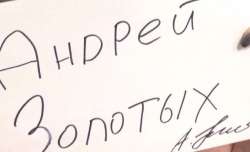 Андрей
Золотых